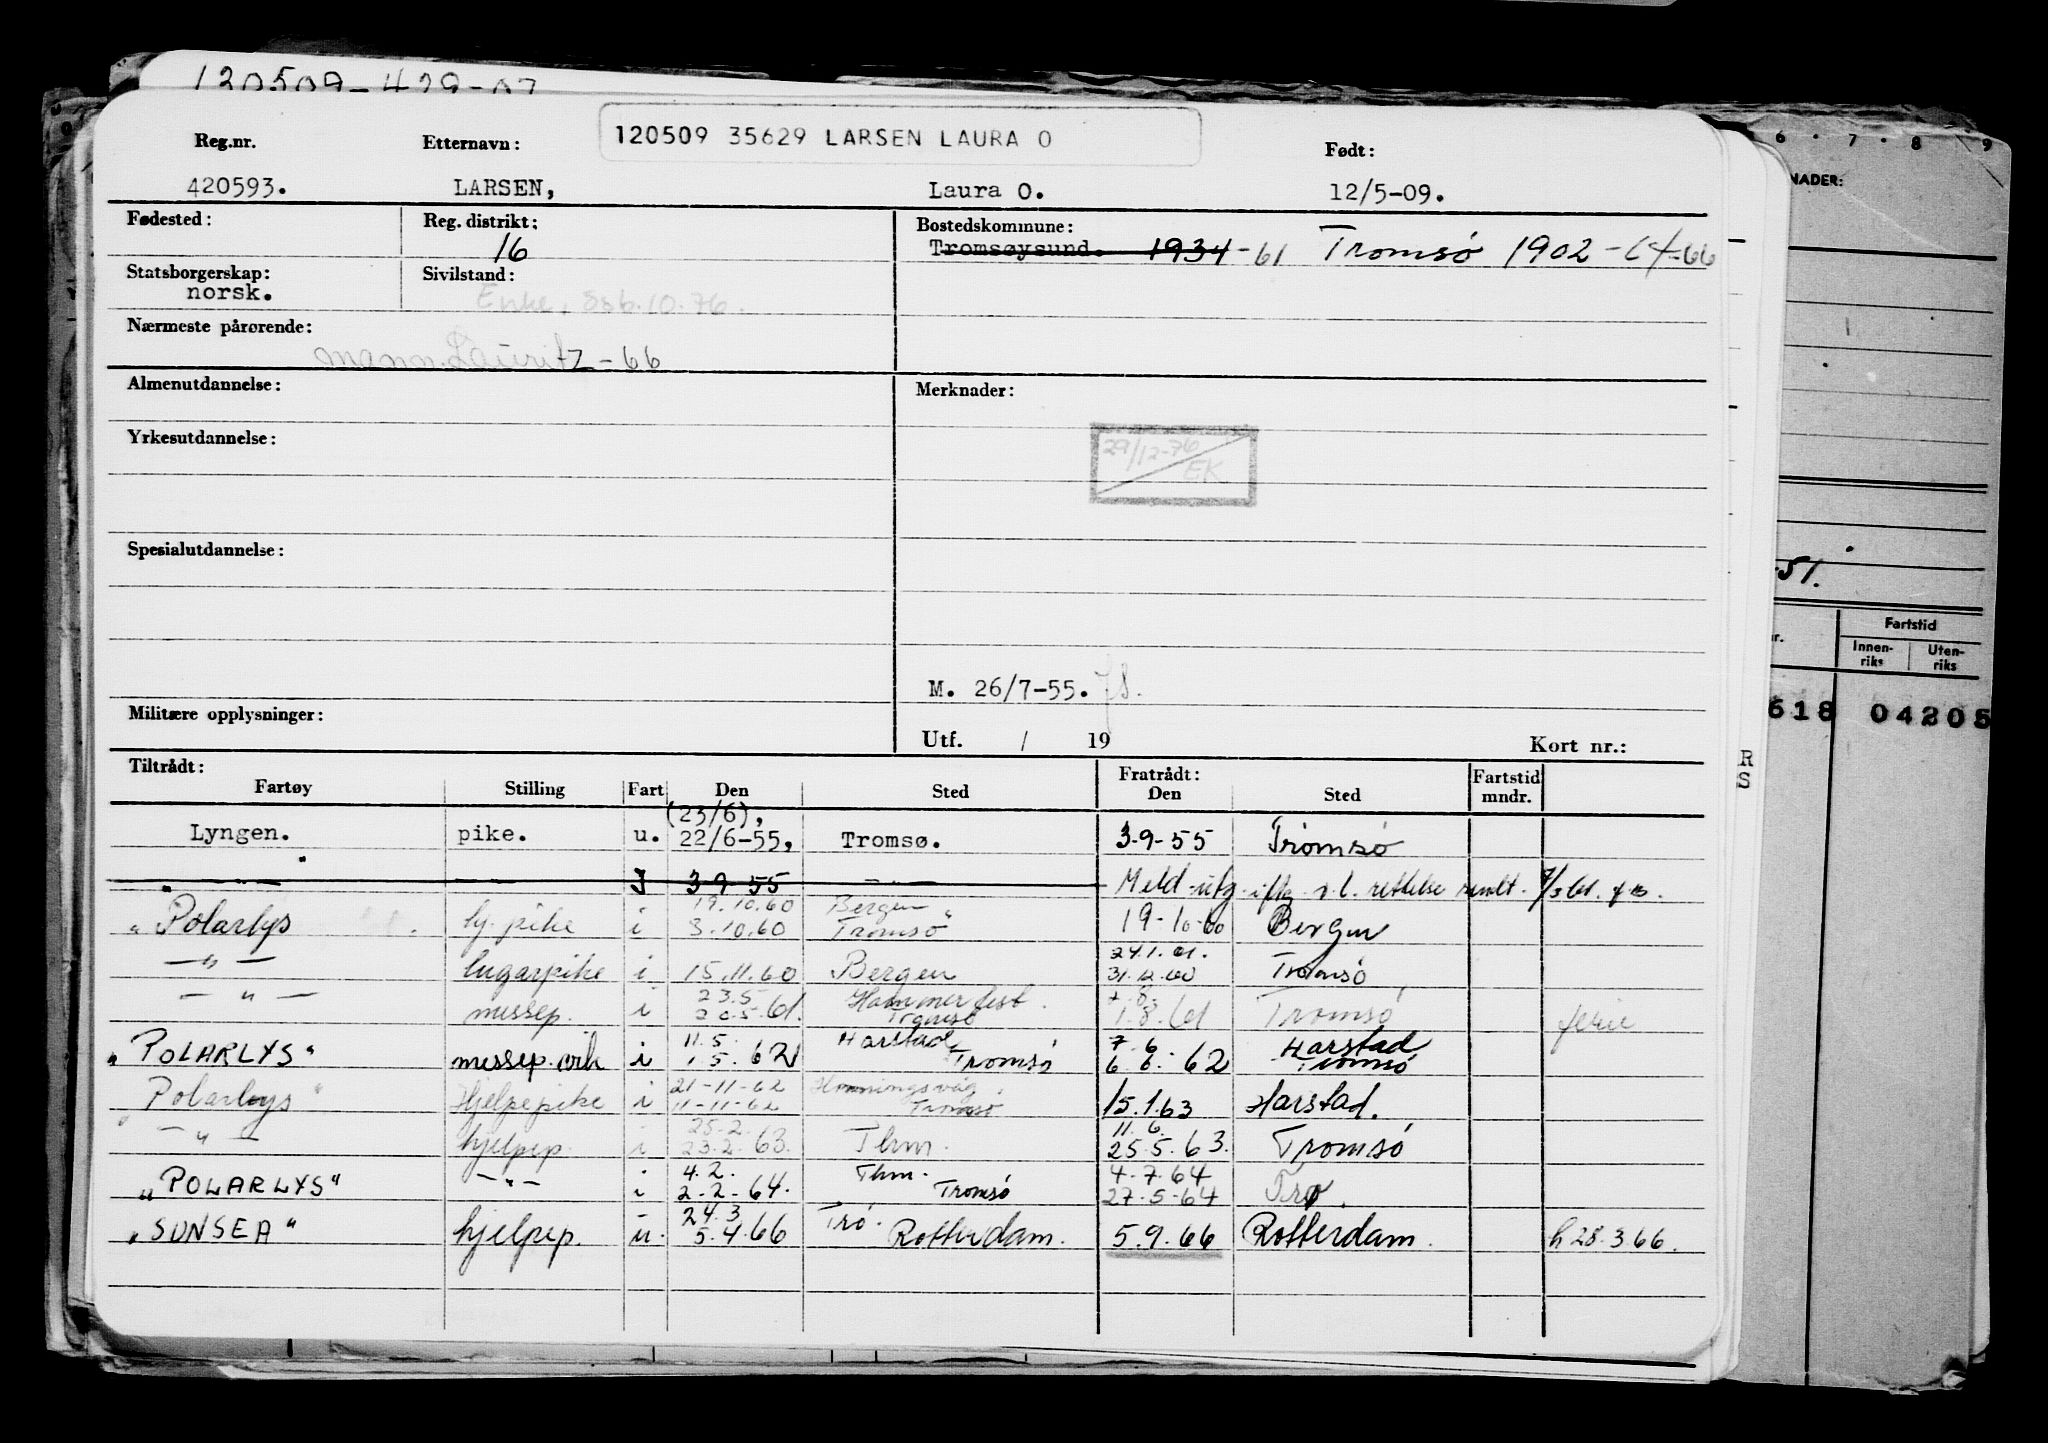 120509-429-07
120509 35629 LARSEN LAURA O
Reg.nr. Etternavn: Født:
420593. LARSEN, Laura O. 12/5-09.
Fødested: Reg. distrikt: Bostedskommune:
16 Tromsøysund. 1934-61 Tromsø 1902-64-66
Statsborgerskap: Sivilstand:
norsk. Enke, Ssb.10.76.
Nærmeste pårørende:
mann. Lauritz-66
Almenutdannelse: Merknader:
Yrkesutdannelse: 29/12-76
EK
Spesialutdannelse:
M. 26/7-55.
Militære opplysninger:
Utf. / 19 Kort nr.:
Tiltrådt: Fratrådt: Fartstid
Fartøy Stilling Fart Den Sted Den Sted mndr.
(23/6),
Lyngen. pike. u. 22/6-55, Tromsø. 3-9-55 Tromsø
— " — — J 3-9-55 — Meld. rettelse sendt. 7/3 61.
19.10.60 Bergen
"Polarlys" hj. pike i 3.10.60 Tromsø 19-10-60 Bergen
24.1.61.
— " — lugarpike i 15.11.60 Bergen 31.12.60 Tromsø
23.5 Hammerfest 7.8.
— " — messep. i 20.5.61. Tromsø 1.8.61 Tromsø ferie
11.5. Harstad 7.6 Harstad
"POLARLYS" messep. i 1.5.62 Tromsø 6.6.62 Tromsø
21-11-62 Honningsvåg
"Polarlys" Hjelpepike i 11-11-62 Tromsø 15.1.63 Harstad.
25.2. 11.6.
— " — hjelpep. i 23.2.63. Thm. 25.5.63. Tromsø
4.2. Thm. 4-7-64
"POLARLYS" — " — i 2-2-64. Tromsø 27-5-64 Trø.
24.3 Trø.
"SUNSEA" hjelpep. u. 5.4.66 Rotterdam. 5.9.66 Rotterdam. h 28.3.66.
6 . 7 . 8 . 9
NADER:
-51.
Fartstid
r. Innen-riks Uten-riks
618 04205
R
S